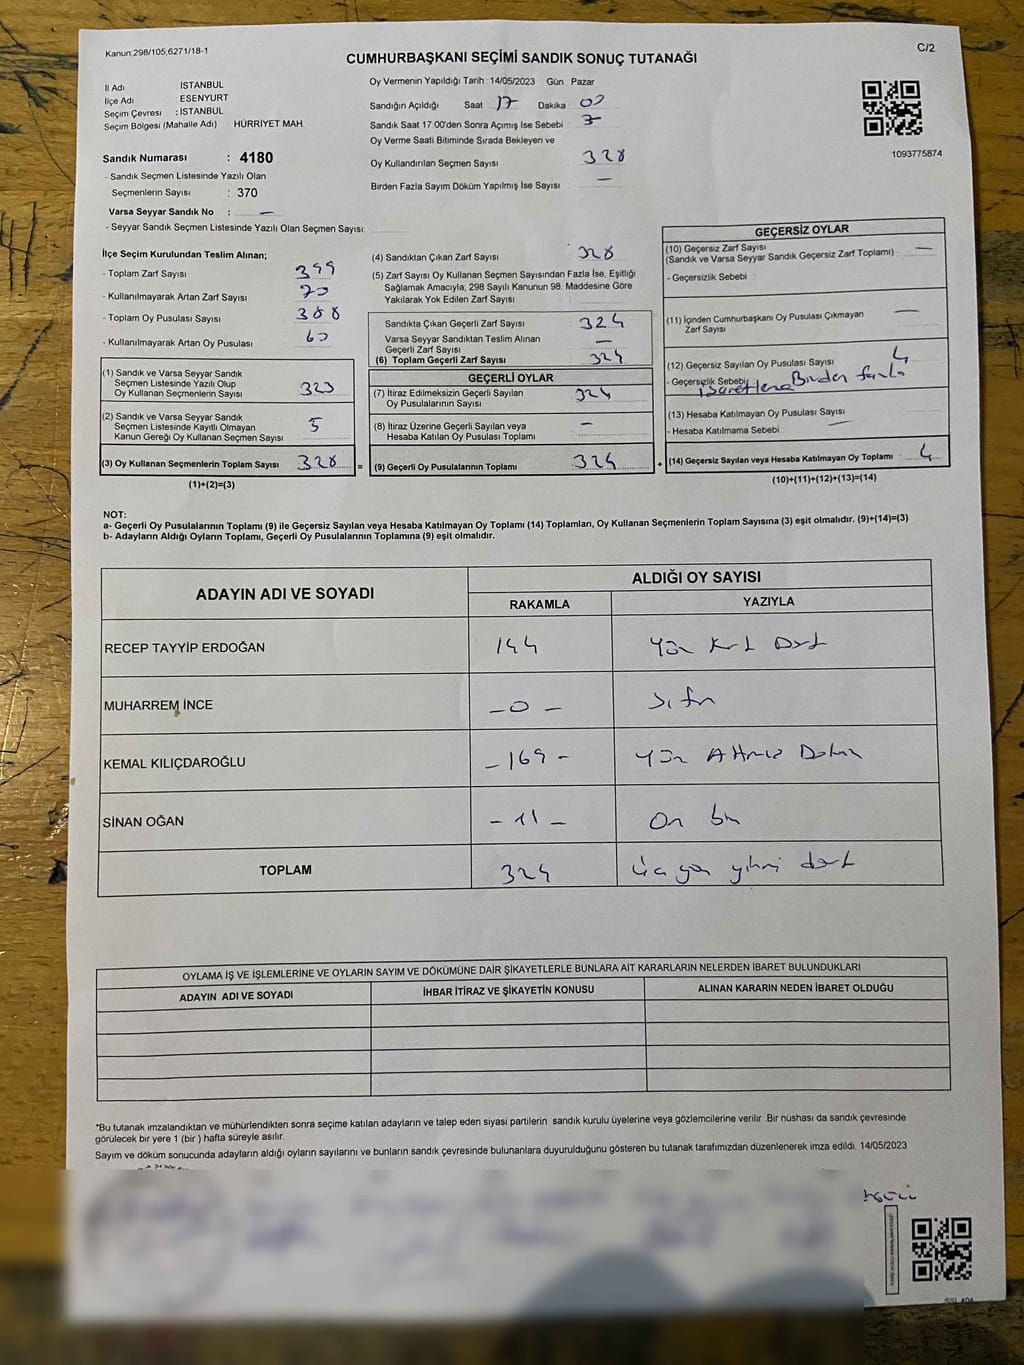 Kanun:298/105,6271/18-1
C/2
CUMHURBAŞKANI SEÇİMİ SANDIK SONUÇ TUTANAĞI
İl Adı : İSTANBUL
İlçe Adı : ESENYURT
Seçim Çevresi : İSTANBUL
Seçim Bölgesi (Mahalle Adı) HÜRRİYET MAH.
Sandık Numarası : 4180
- Sandık Seçmen Listesinde Yazılı Olan
Seçmenlerin Sayısı : 370
Varsa Seyyar Sandık No : —
- Seyyar Sandık Seçmen Listesinde Yazılı Olan Seçmen Sayısı:
Oy Vermenin Yapıldığı Tarih : 14/05/2023 Gün : Pazar
Sandığın Açıldığı Saat 17 Dakika : 00
Sandık Saat 17:00'den Sonra Açımış İse Sebebi :
Oy Verme Saati Bitiminde Sırada Bekleyen ve
Oy Kullandırılan Seçmen Sayısı : 328
Birden Fazla Sayım Döküm Yapılmış İse Sayısı : —
1093775874
İlçe Seçim Kurulundan Teslim Alınan;
- Toplam Zarf Sayısı : 399
- Kullanılmayarak Artan Zarf Sayısı : 70
- Toplam Oy Pusulası Sayısı : 388
- Kullanılmayarak Artan Oy Pusulası : 60
(1) Sandık ve Varsa Seyyar Sandık
Seçmen Listesinde Yazılı Olup
Oy Kullanan Seçmenlerin Sayısı : 323
(2) Sandık ve Varsa Seyyar Sandık
Seçmen Listesinde Kayıtlı Olmayan
Kanun Gereği Oy Kullanan Seçmen Sayısı : 5
(3) Oy Kullanan Seçmenlerin Toplam Sayısı : 328 =
(1)+(2)=(3)
(4) Sandıktan Çıkan Zarf Sayısı : 328
(5) Zarf Sayısı Oy Kullanan Seçmen Sayısından Fazla İse, Eşitliği
Sağlamak Amacıyla; 298 Sayılı Kanunun 98. Maddesine Göre
Yakılarak Yok Edilen Zarf Sayısı :
Sandıkta Çıkan Geçerli Zarf Sayısı : 324
Varsa Seyyar Sandıktan Teslim Alınan
Geçerli Zarf Sayısı : —
(6) Toplam Geçerli Zarf Sayısı : 324
GEÇERLİ OYLAR
(7) İtiraz Edilmeksizin Geçerli Sayılan
Oy Pusulalarının Sayısı : 324
(8) İtiraz Üzerine Geçerli Sayılan veya
Hesaba Katılan Oy Pusulası Toplamı : —
(9) Geçerli Oy Pusulalarının Toplamı : 324 +
GEÇERSİZ OYLAR
(10) Geçersiz Zarf Sayısı
(Sandık ve Varsa Seyyar Sandık Geçersiz Zarf Toplamı) : —
- Geçersizlik Sebebi :
(11) İçinden Cumhurbaşkanı Oy Pusulası Çıkmayan
Zarf Sayısı : —
(12) Geçersiz Sayılan Oy Pusulası Sayısı : 4
- Geçersizlik Sebebi : Birden fazla
işaretleme
(13) Hesaba Katılmayan Oy Pusulası Sayısı : —
- Hesaba Katılmama Sebebi :
(14) Geçersiz Sayılan veya Hesaba Katılmayan Oy Toplamı : 4
(10)+(11)+(12)+(13)=(14)
NOT:
a- Geçerli Oy Pusulalarının Toplamı (9) ile Geçersiz Sayılan veya Hesaba Katılmayan Oy Toplamı (14) Toplamları, Oy Kullanan Seçmenlerin Toplam Sayısına (3) eşit olmalıdır. (9)+(14)=(3)
b- Adayların Aldığı Oyların Toplamı, Geçerli Oy Pusulalarının Toplamına (9) eşit olmalıdır.
ADAYIN ADI VE SOYADI
ALDIĞI OY SAYISI
RAKAMLA YAZIYLA
RECEP TAYYİP ERDOĞAN 144 Yüz Kırk Dört
MUHARREM İNCE - 0 - Sıfır
KEMAL KILIÇDAROĞLU - 169 - Yüz Altmış Dokuz
SİNAN OĞAN - 11 - On bir
TOPLAM 324 Üç yüz yirmi dört
OYLAMA İŞ VE İŞLEMLERİNE VE OYLARIN SAYIM VE DÖKÜMÜNE DAİR ŞİKAYETLERLE BUNLARA AİT KARARLARIN NELERDEN İBARET BULUNDUKLARI
ADAYIN ADI VE SOYADI İHBAR İTİRAZ VE ŞİKAYETİN KONUSU ALINAN KARARIN NEDEN İBARET OLDUĞU
*Bu tutanak imzalandıktan ve mühürlendikten sonra seçime katılan adayların ve talep eden siyasi partilerin sandık kurulu üyelerine veya gözlemcilerine verilir. Bir nüshası da sandık çevresinde
görülecek bir yere 1 (bir ) hafta süreyle asılır.
Sayım ve döküm sonucunda adayların aldığı oyların sayılarını ve bunların sandık çevresinde bulunanlara duyurulduğunu gösteren bu tutanak tarafımızdan düzenlenerek imza edildi. 14/05/2023